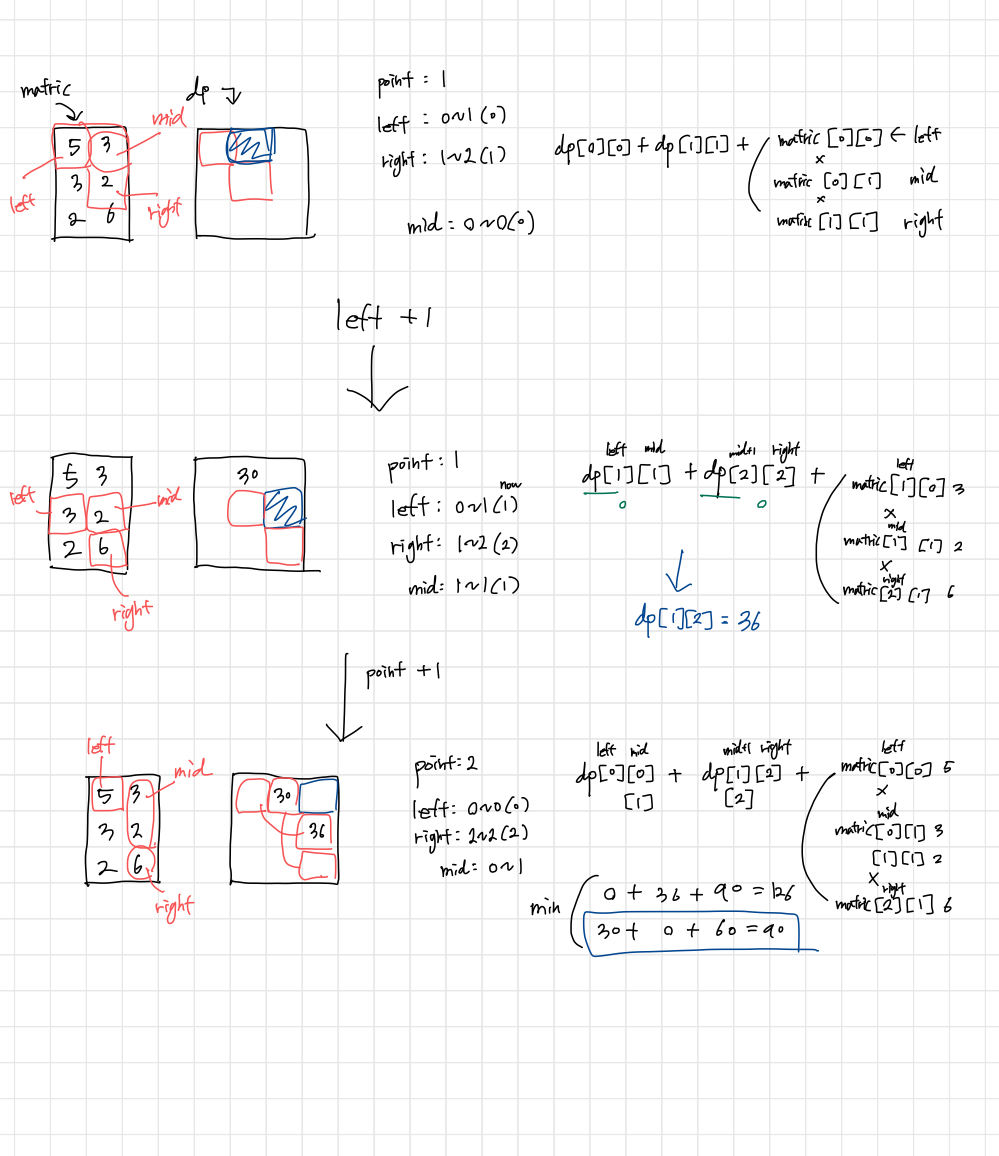 matric
dp
mid
5 3
3 2
2 6
left
right
point : 1
left : 0~1 (0)
right : 1~2 (1)
mid : 0~0(0)
dp[0][0] + dp[1][1] +
matric [0][0] ← left
×
matric [0][1] mid
×
matric [1][1] right
left +1
5 3
3 2
2 6
left
mid
right
30
point : 1
now
left : 0~1 (1)
right : 1~2 (2)
mid : 1~1 (1)
left mid mid+1 right
dp[1][1] + dp[2][2] +
0 0
left
matric[1][0] 3
×
mid
matric[1] [1] 2
×
right
matric[2][1] 6
dp[1][2] = 36
point +1
left
mid
5 3
3 2
2 6
right
30
36
point : 2
left : 0~0(0)
right : 2~2(2)
mid : 0~1
left mid mid+1 right
dp[0][0] + dp[1][2] +
[1] [2]
left
matric[0][0] 5
×
mid
matric[0][1] 3
[1][1] 2
×
right
matric[2][1] 6
min
0 + 36 + 90 = 126
30 + 0 + 60 = 90